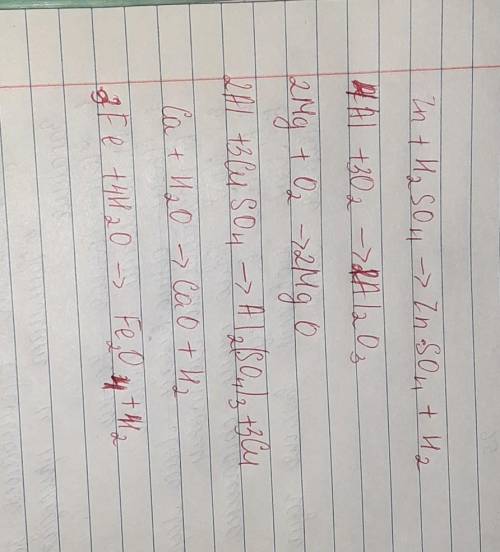 Zn + H₂SO₄ → ZnSO₄ + H₂
4Al + 3O₂ → 2Al₂O₃
2Mg + O₂ → 2MgO
2Al + 3CuSO₄ → Al₂(SO₄)₃ + 3Cu
Ca + H₂O → CaO + H₂
3Fe + 4H₂O → Fe₂O₄ + 4H₂